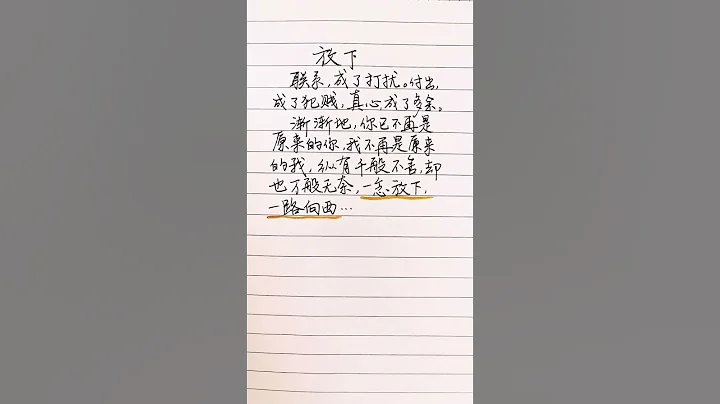 放下
联系,成了打扰。付出,
成了犯贱,真心,成了多余。
渐渐地,你已不再是
原来的你,我不再是原来
的我,纵有千般不舍,却
也万般无奈,一念放下,
一路向西…